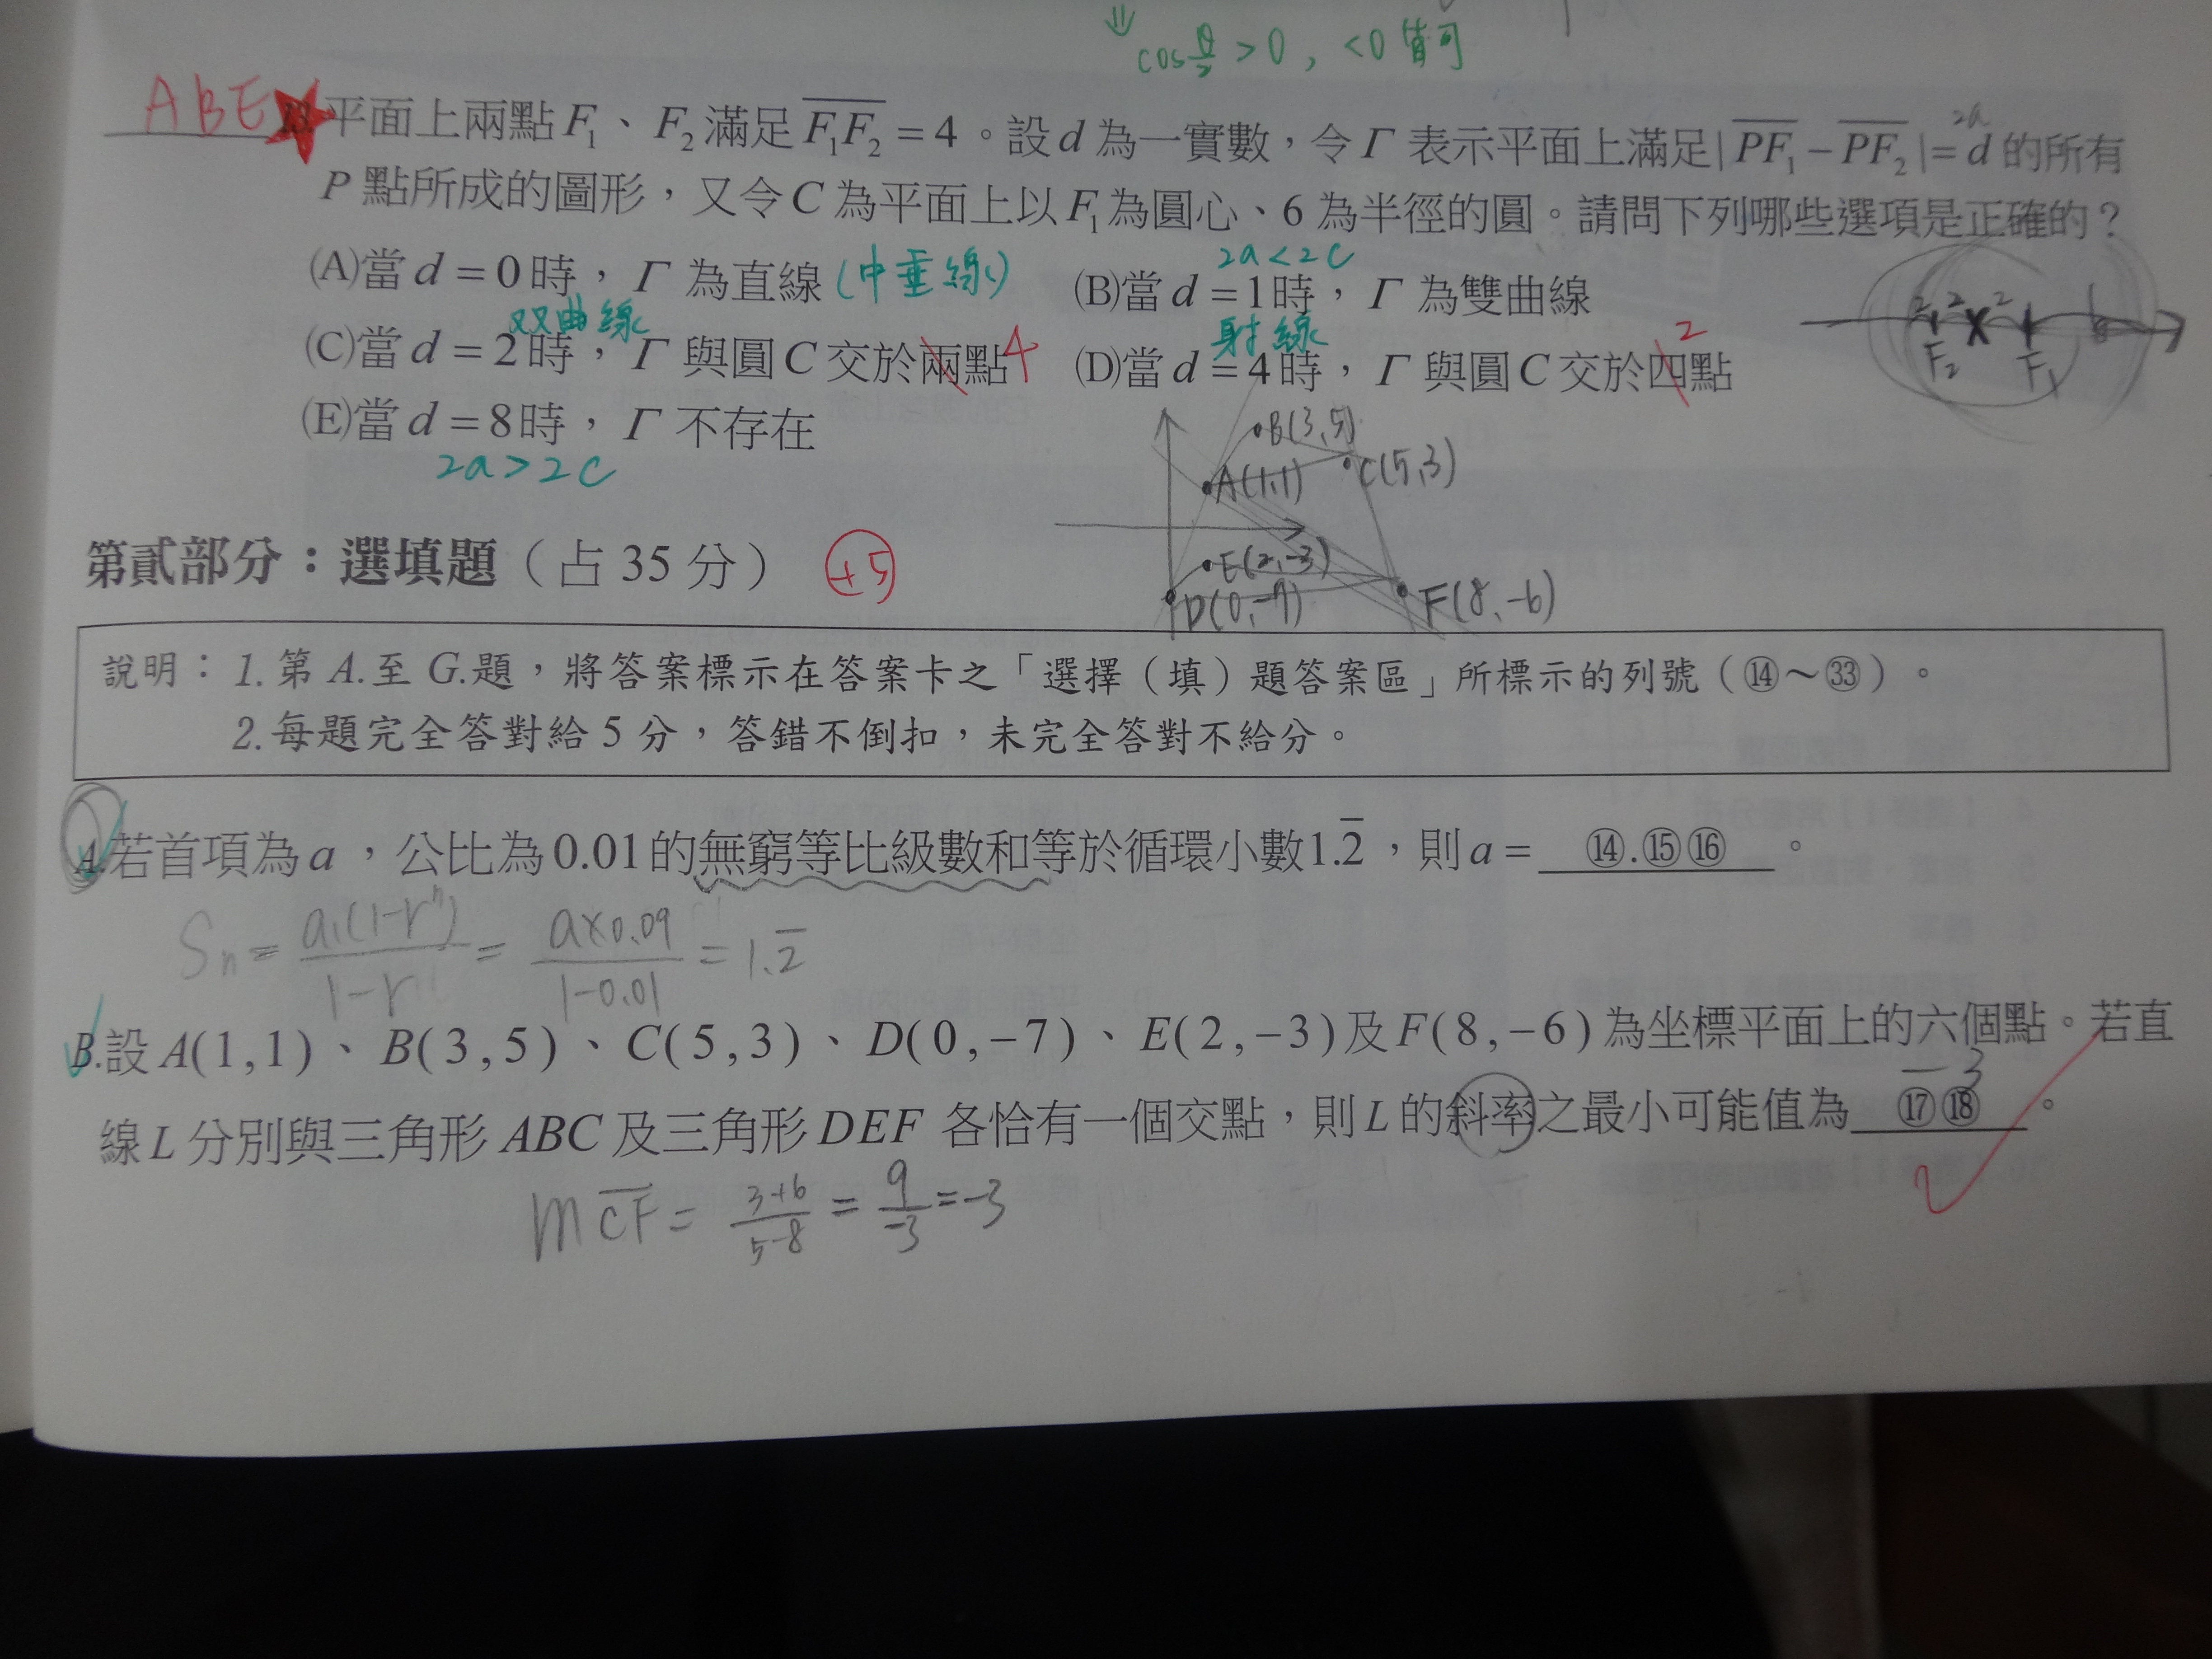 ⇓
cos θ/2 > 0 , < 0 皆可
ABE ★ 13. 平面上兩點 F₁、F₂ 滿足 \overline{F₁F₂} = 4。設 d 為一實數，令 Γ 表示平面上滿足 | \overline{PF₁} − \overline{PF₂} | = d 的所有
2a
P 點所成的圖形，又令 C 為平面上以 F₁ 為圓心、6 為半徑的圓。請問下列哪些選項是正確的？
(A)當 d = 0 時，Γ 為直線 (中垂線)
2a < 2c
(B)當 d = 1 時，Γ 為雙曲線
双曲線
(C)當 d = 2 時，Γ 與圓 C 交於兩點 4
射線
(D)當 d = 4 時，Γ 與圓 C 交於四點 2
(E)當 d = 8 時，Γ 不存在
2a > 2c
2 2 2 6
F₂ F₁
B(3,5)
A(1,1) C(5,3)
E(2,-3)
D(0,-7) F(8,-6)
第貳部分：選填題（占 35 分） +5
說明：1. 第 A. 至 G. 題，將答案標示在答案卡之「選擇（填）題答案區」所標示的列號（⑭～㉝）。
2. 每題完全答對給 5 分，答錯不倒扣，未完全答對不給分。
A. 若首項為 a，公比為 0.01 的無窮等比級數和等於循環小數 1.\overline{2}，則 a = ⑭.⑮⑯。
Sn = a₁(1-rⁿ)/1-r = a×0.09/1-0.01 = 1.\overline{2}
B. 設 A(1,1)、B(3,5)、C(5,3)、D(0,−7)、E(2,−3) 及 F(8,−6) 為坐標平面上的六個點。若直
-3
線 L 分別與三角形 ABC 及三角形 DEF 各恰有一個交點，則 L 的斜率之最小可能值為 ⑰⑱。
m\overline{CF} = 3+6/5-8 = 9/-3 = -3